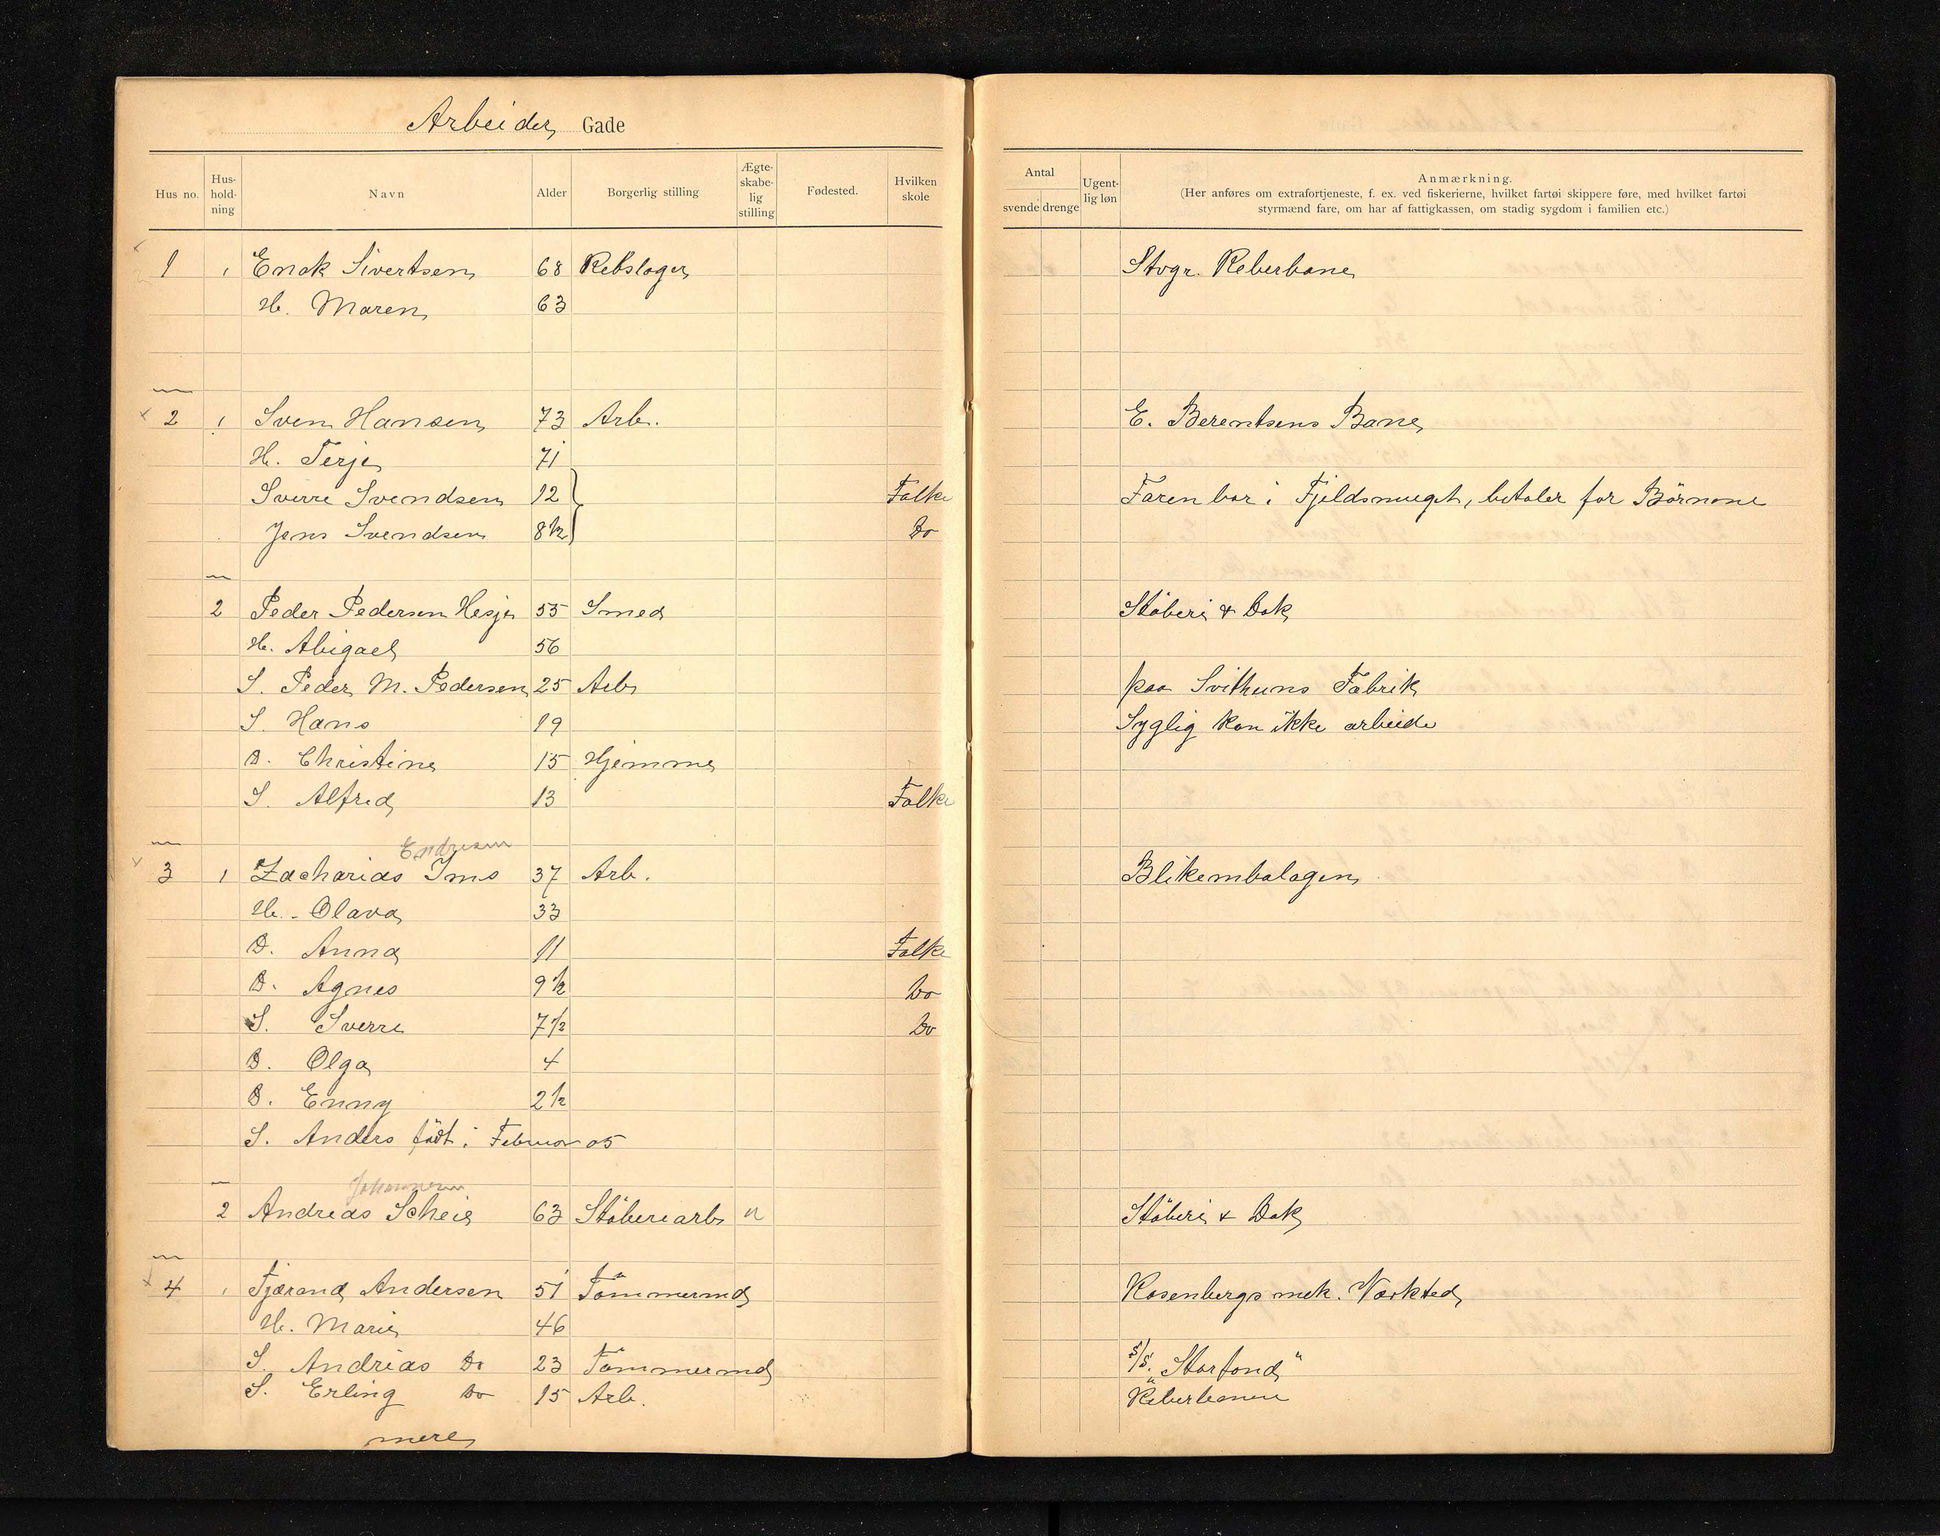 Arbeider Gade
Hus no. Hus-hold-ning Navn Alder Borgerlig stilling Ægte-skabe-lig stilling Fødested. Hvilken skole Antal svende drenge Ugent-lig løn Anmærkning.
(Her anføres om extrafortjeneste, f. ex. ved fiskerierne, hvilket fartøi skippere føre, med hvilket fartøi
styrmænd fare, om har af fattigkassen, om stadig sygdom i familien etc.)
1 1 Enok Sivertsen 68 Rebslager Stvgr. Reberbane
H. Maren 63
2 1 Sven Hansen 73 Arb. E. Berentsens Bane
H. Terje 71
Sverre Svendsen 12 Folke Faren bor i Fjeldsmuget, betaler for Börnene
Jens Svendsen 8½ Do
2 Peder Pedersen Hesje 55 Smed Stöberi & Dok
H. Abigael 56
S. Peder M. Pedersen 25 Arb paa Svithuns Fabrik
S. Hans 19 Syglig kan ikke arbeide
D. Christine 15 Hjemme
S. Alfred 13 Folke
Endresen
3 1 Zacharias Ims 37 Arb. Blikembalagen
H. Olava 33
D. Anna 11 Folke
D. Agnes 9½ Do
S. Sverre 7½ Do
D. Olga 4
D. Enny 2½
S. Anders födt i Februar 05
Johannesen
2 Andreas Scheie 63 Stöberiarb Stöberi & Dok
4 1 Tjærand Andersen 51 Tömmermd Rosenbergs mek. Værksted
H. Marie 46
S. Andreas Do 23 Tömmermd S/S. "Storfond"
S. Erling Do 15 Arb. Reberbanen
mere